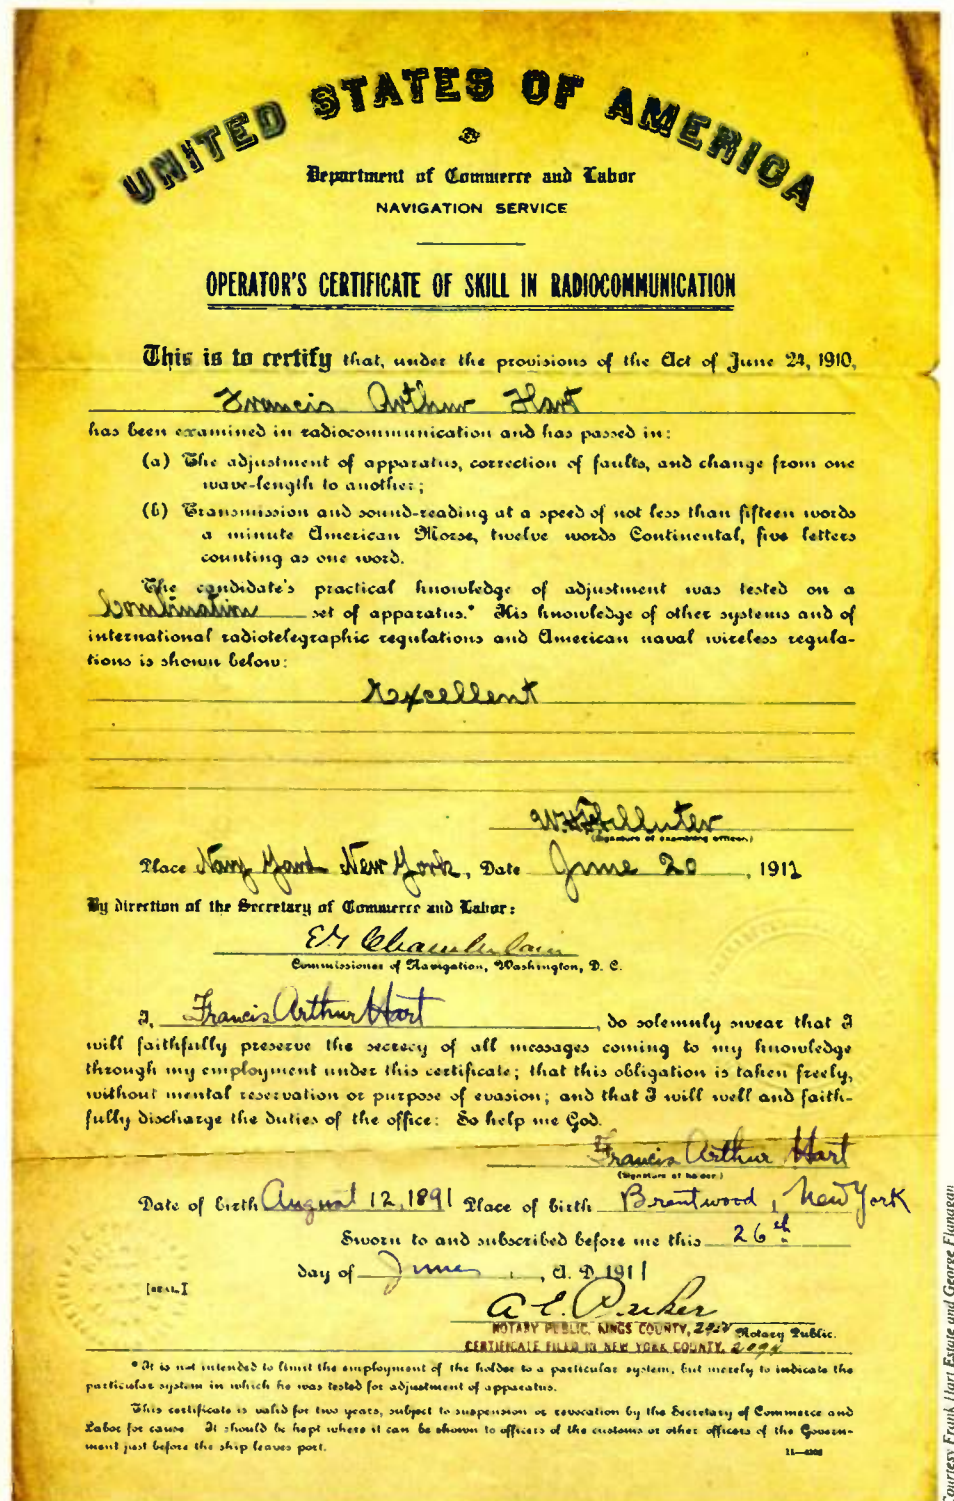 UNITED STATES OF AMERICA
Department of Commerce and Labor
NAVIGATION SERVICE
OPERATOR'S CERTIFICATE OF SKILL IN RADIOCOMMUNICATION
This is to certify that, under the provisions of the Act of June 24, 1910,
Francis Arthur Hart
has been examined in radiocommunication and has passed in:
(a) The adjustment of apparatus, correction of faults, and change from one
wave-length to another;
(b) Transmission and sound-reading at a speed of not less than fifteen words
a minute American Morse, twelve words Continental, five letters
counting as one word.
The candidate's practical knowledge of adjustment was tested on a
Combination set of apparatus.* His knowledge of other systems and of
international radiotelegraphic regulations and American naval wireless regula-
tions is shown below:
Excellent
(Signature of examining officer.)
Place Navy Yard New York, Date June 20, 1911
By direction of the Secretary of Commerce and Labor:
Chamberlain
Commissioner of Navigation, Washington, D. C.
I, Francis Arthur Hart, do solemnly swear that I
will faithfully preserve the secrecy of all messages coming to my knowledge
through my employment under this certificate; that this obligation is taken freely,
without mental reservation or purpose of evasion; and that I will well and faith-
fully discharge the duties of the office: So help me God.
Francis Arthur Hart
(Signature of holder)
Date of birth August 12, 1891 Place of birth Brentwood, New York
Sworn to and subscribed before me this 26th
day of June, A. D. 1911
[SEAL]
A E. Parker
NOTARY PUBLIC, KINGS COUNTY, Notary Public.
CERTIFICATE FILED IN NEW YORK COUNTY,
*It is not intended to limit the employment of the holder to a particular system, but merely to indicate the
particular system in which he was tested for adjustment of apparatus.
This certificate is valid for two years, subject to suspension or revocation by the Secretary of Commerce and
Labor for cause. It should be kept where it can be shown to officers of the customs or other officers of the Govern-
ment just before the ship leaves port.
Courtesy Frank Hart Estate and George Flanagan